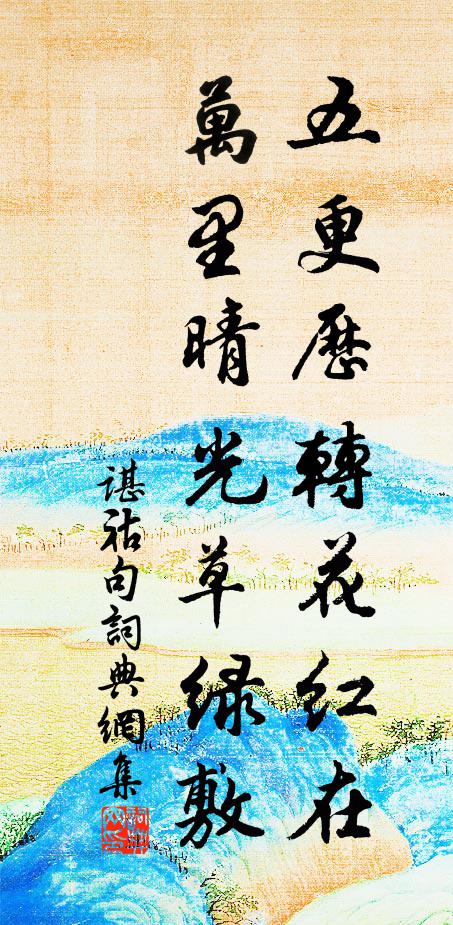 五更歷轉花紅在
萬里晴光草绿敷
諶祜句詞典網集